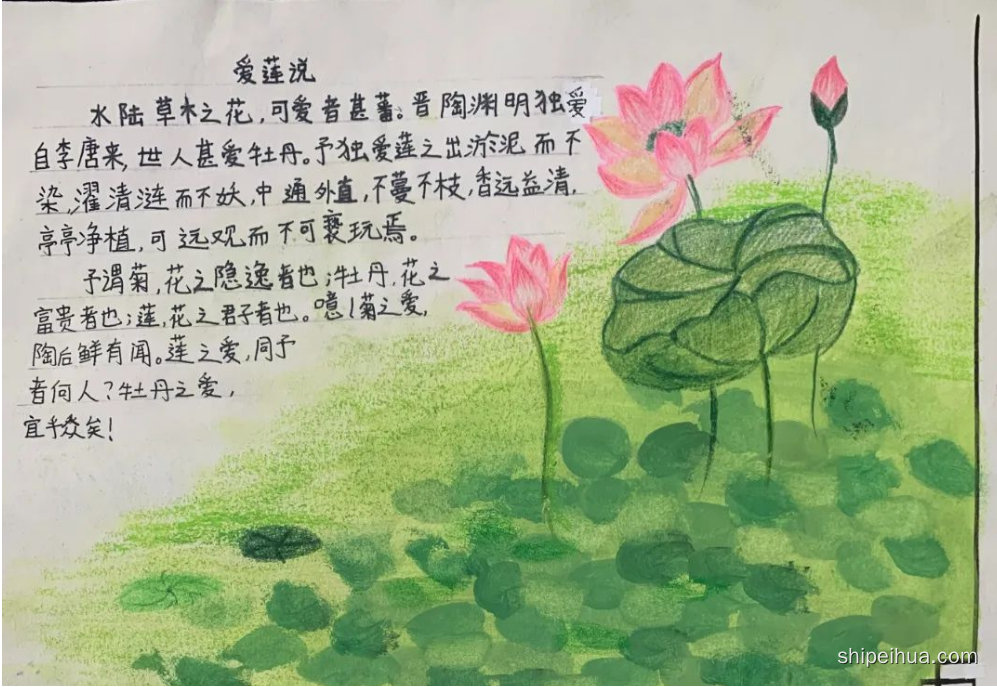 爱莲说
水陆草木之花,可爱者甚蕃。晋陶渊明独爱
自李唐来,世人甚爱牡丹。予独爱莲之出淤泥而不
染,濯清涟而不妖,中通外直,不蔓不枝,香远益清,
亭亭净植,可远观而不可亵玩焉。
予谓菊,花之隐逸者也;牡丹,花之
富贵者也;莲,花之君子者也。噫!菊之爱,
陶后鲜有闻。莲之爱,同予
者何人?牡丹之爱,
宜乎众矣!
shipeihua.com